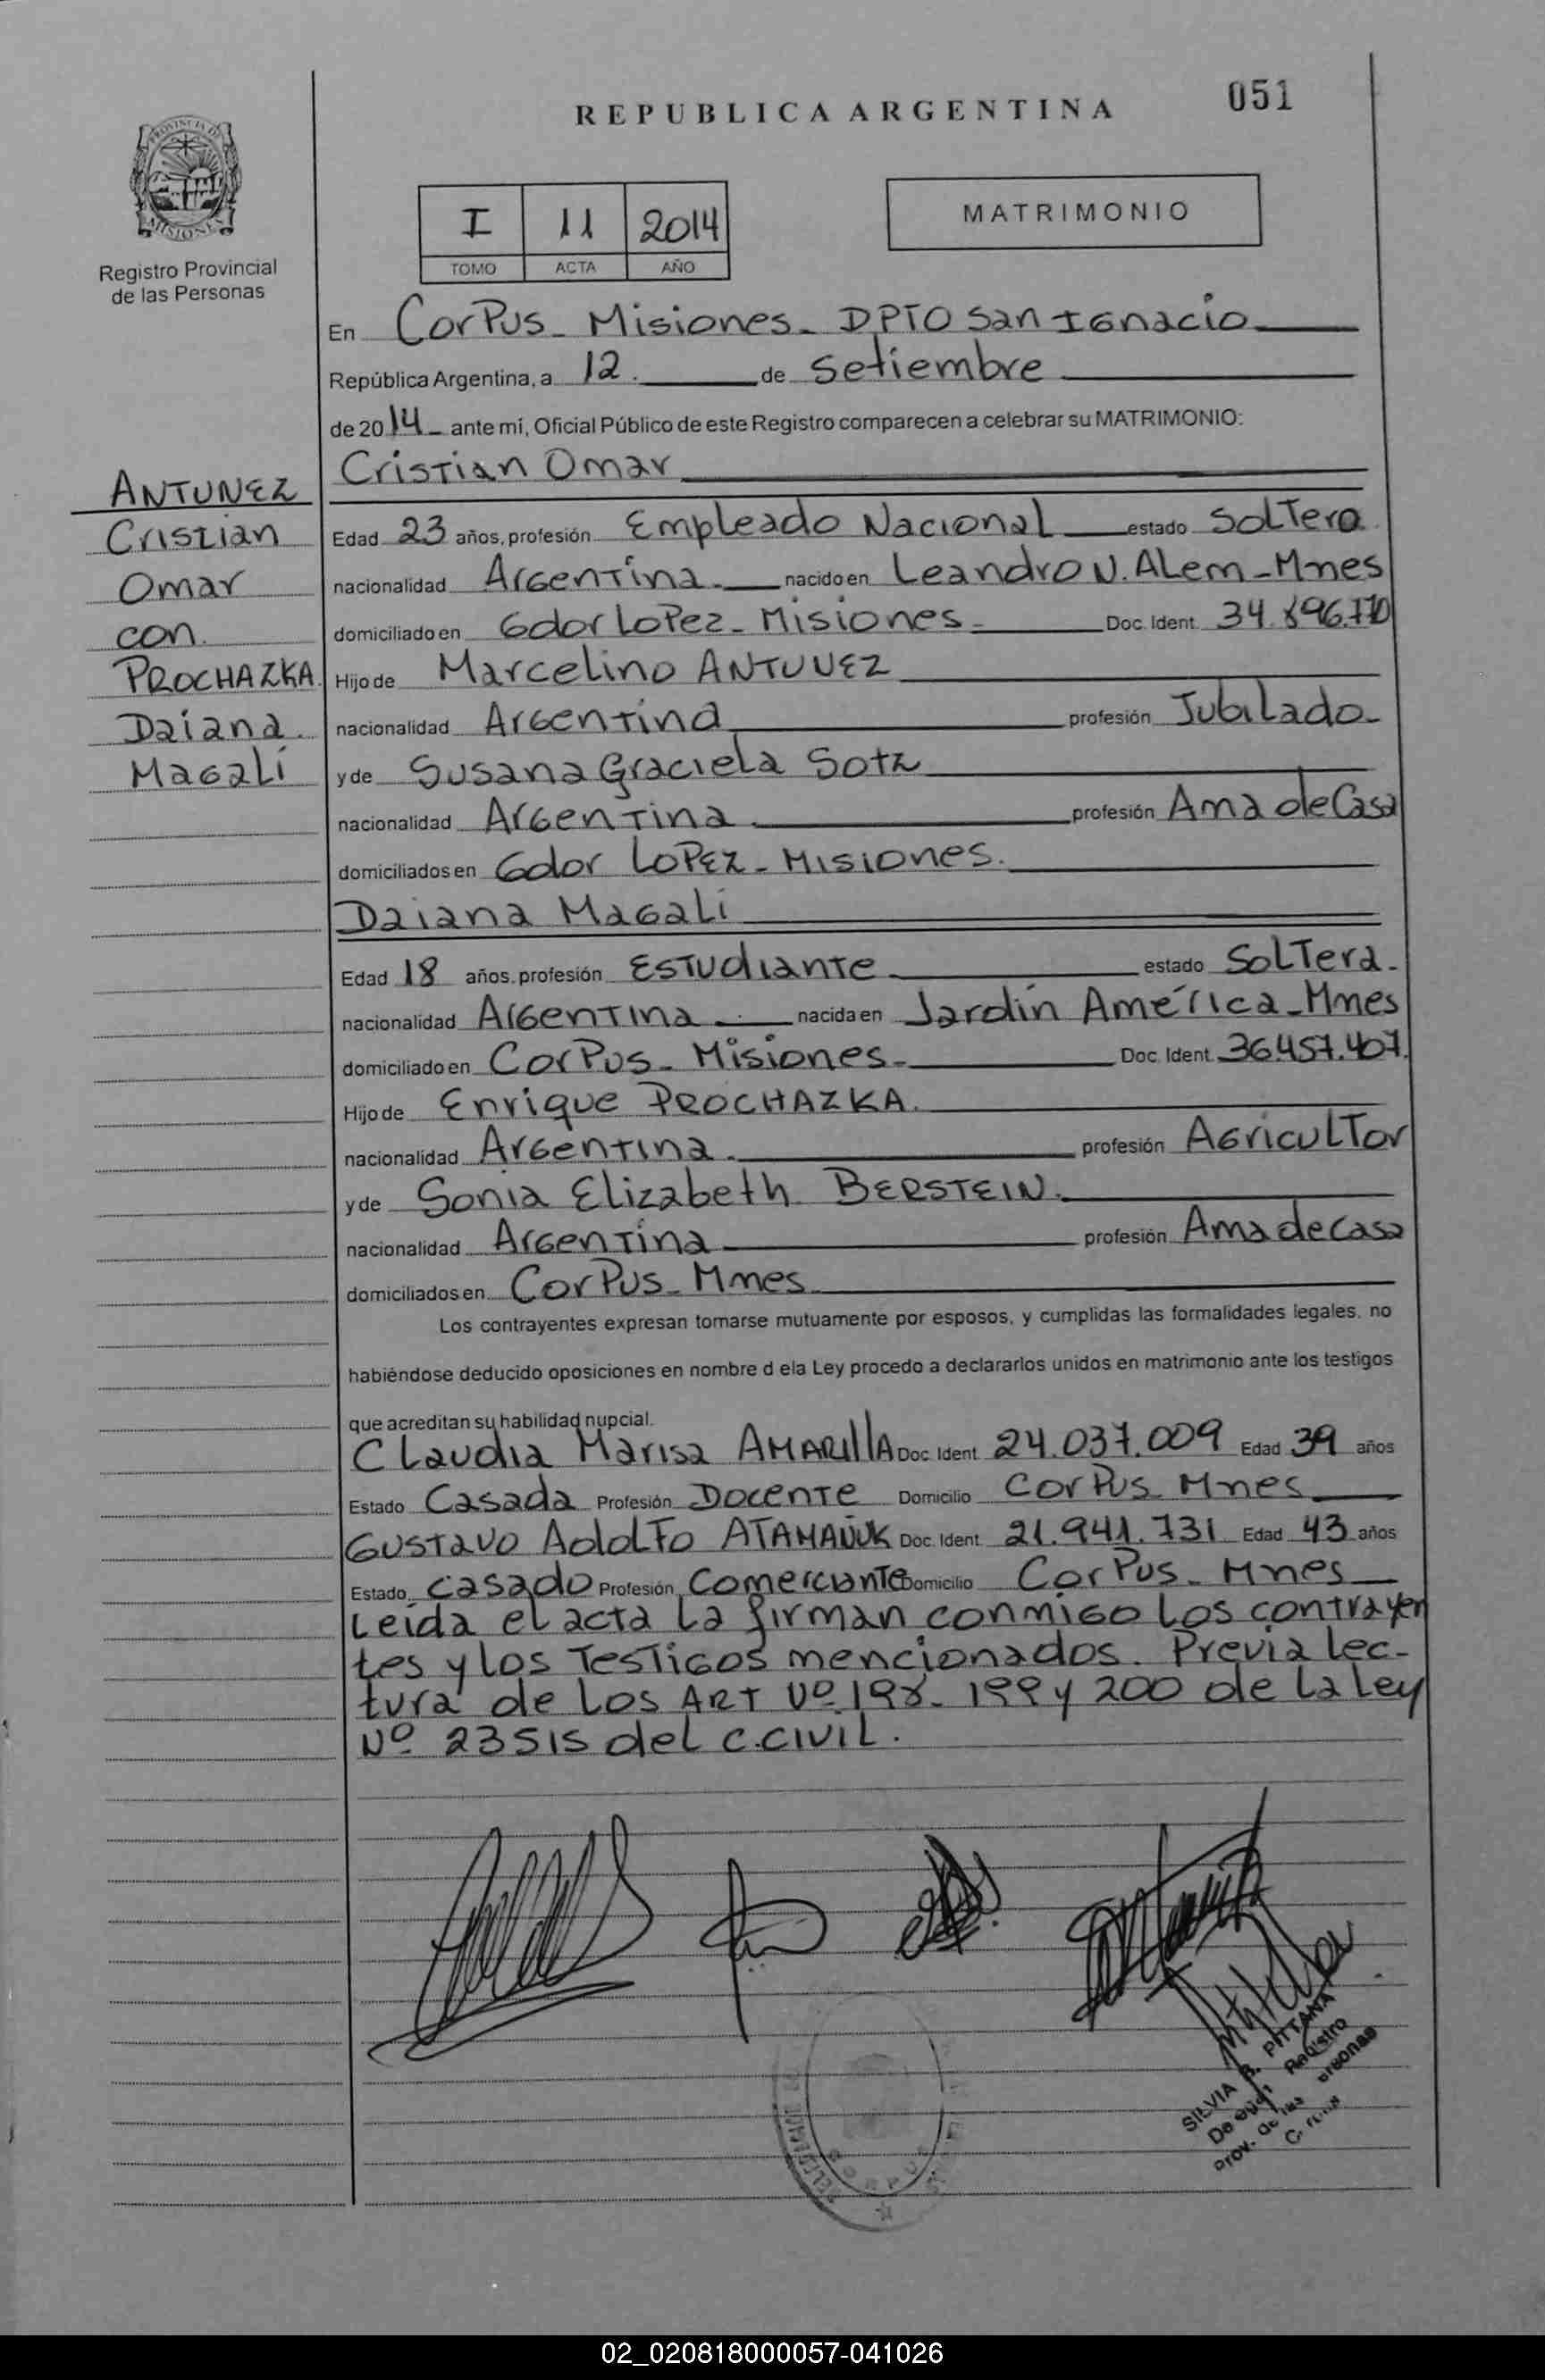 REPUBLICA ARGENTINA
051
PROVINCIA DE
MISIONES
Registro Provincial
de las Personas
I 11 2014
TOMO ACTA AÑO
MATRIMONIO
En CorPus - Misiones - DPTO San Ignacio
República Argentina, a 12. de Setiembre
de 2014 - ante mí, Oficial Público de este Registro comparecen a celebrar su MATRIMONIO:
ANTUNEZ
Cristian
Omar
con
PROCHAZKA.
Daiana.
Magali
Cristian Omar
Edad 23 años, profesión Empleado Nacional estado Soltero
nacionalidad Argentina. nacido en Leandro N. Alem - Mnes
domiciliado en Gdor Lopez - Misiones - Doc. Ident. 34.896.770
Hijo de Marcelino ANTUNEZ
nacionalidad Argentina profesión Jubilado -
y de Susana Graciela Sotz
nacionalidad Argentina. profesión Ama de Casa
domiciliados en Gdor LOPEZ - Misiones.
Daiana Magali
Edad 18 años, profesión Estudiante estado Soltera -
nacionalidad Argentina nacida en Jardín América - Mnes
domiciliado en CorPus - Misiones - Doc. Ident. 36.457.407.
Hijo de Enrique PROCHAZKA.
nacionalidad Argentina. profesión Agricultor
y de Sonia Elizabeth BERSTEIN.
nacionalidad Argentina profesión Ama de Casa
domiciliados en CorPus - Mnes
Los contrayentes expresan tomarse mutuamente por esposos, y cumplidas las formalidades legales, no
habiéndose deducido oposiciones en nombre d ela Ley procedo a declararlos unidos en matrimonio ante los testigos
que acreditan su habilidad nupcial.
Claudia Marisa AMARIllA Doc. Ident. 24.037.009 Edad 39 años
Estado Casada Profesión Docente Domicilio CorPus - Mnes
Gustavo Adolfo ATAMAÑUK Doc. Ident. 21.941.731 Edad 43 años
Estado Casado Profesión Comerciante Domicilio CorPus - Mnes
Leída el acta la firman conmigo los contrayen
tes y los Testigos mencionados. Previa lec-
tura de los ART Nº 198 - 199 y 200 de la Ley
Nº 23515 del C.CIVIL.
SILVIA R. PITTANA
Registro
Prov. de las
CORPUS
02_020818000057-041026